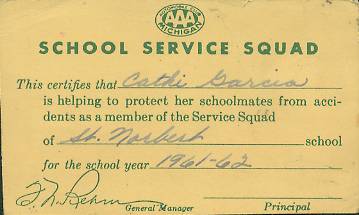 AUTOMOBILE CLUB
AAA
MICHIGAN
SCHOOL SERVICE SQUAD
This certifies that Cathi Garcia
is helping to protect her schoolmates from acci-
dents as a member of the Service Squad
of St. Norbert school
for the school year 1961-62
General Manager
Principal